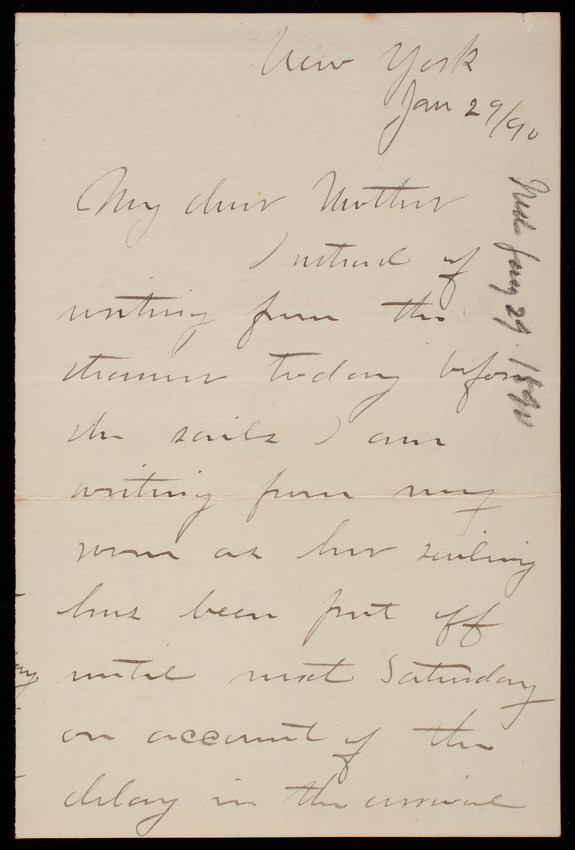 New York
Jan 29/90
My dear Mother
Instead of
writing from the
steamer today before
she sails I am
writing from my
room as her sailing
has been put off
until next Saturday
on account of the
delay in the arrival
Jany 29. 1890